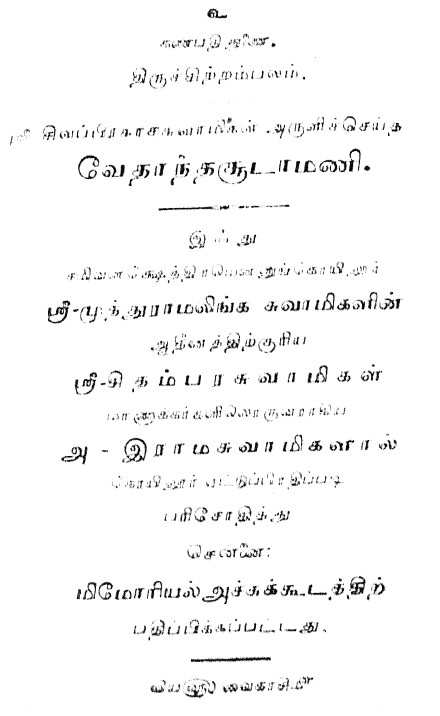 உ
கணபதிதுணை.
திருச்சிற்றம்பலம்.
ஸ்ரீ சிவப்பிரகாசசுவாமிகள் அருளிச்செய்த
வேதாந்தசூடாமணி.
இஃது
ஸ்ரீ-முத்துராமலிங்க சுவாமிகளின்
ஆதீனத்திற்குரிய
ஸ்ரீ-சிதம்பரசுவாமிகள்
மாணாக்கர்களிலொருவராகிய
அ - இராமசுவாமிகளால்
கோயிலூர் ஏட்டுப்பிரதிப்படி
பரிசோதித்து
சென்னை:
மிமோரியல்அச்சுக்கூடத்திற்
பதிப்பிக்கப்பட்டது.
விய௵ வைகாசி௴